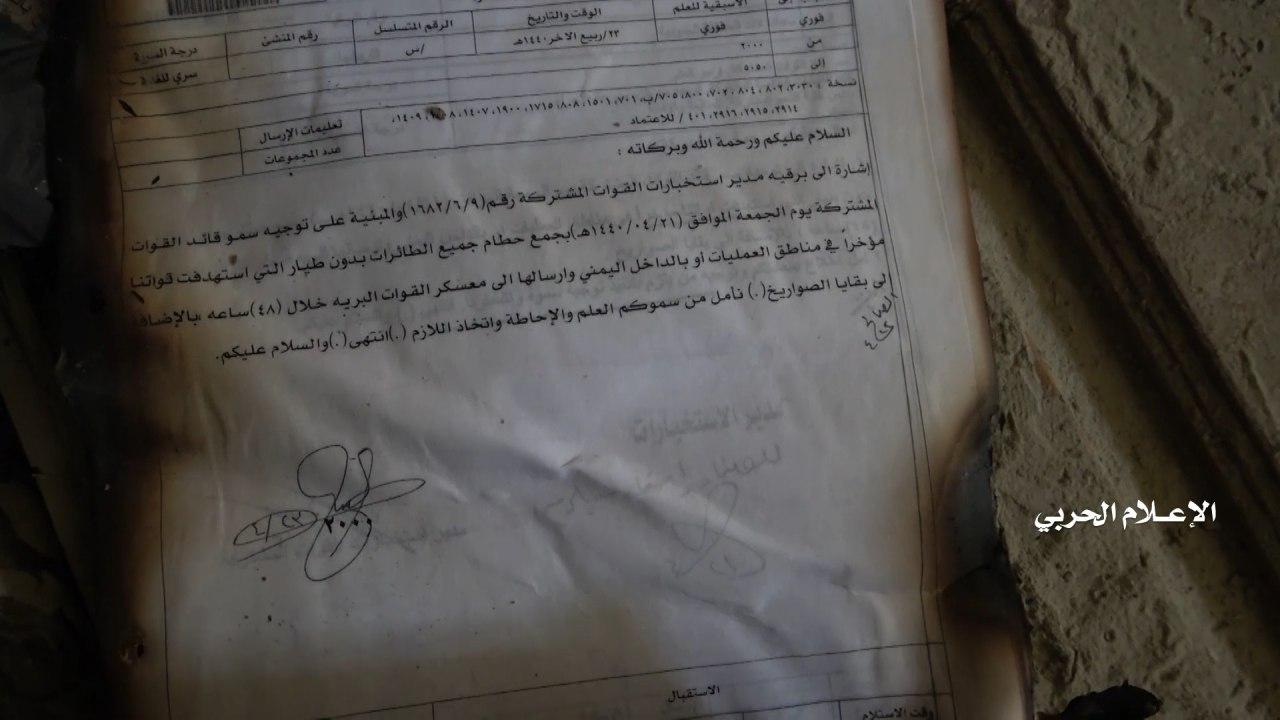 الأسبقية للعلم
الوقت والتاريخ
الرقم المتسلسل
رقم المنشئ
درجة السرية
فوري
فوري
٢٣/ربيع الاخر١٤٤٠هـ
/س
سري للغاية
من
٢٠٠٠
إلى
٥٠٥٠
نسخة : ٢٠٣٠، ٨٠٢، ٨٠٤، ٧٠٢، ٨٠٠، ٧٠٥/ب، ٧٠١، ١٥٠١، ٨٠٨، ١٧١٥، ١٩٠٠، ١٤٠٧، ١٤٠٩،
٢٩١٤، ٢٩١٥، ٢٩١٦، ٤٠١ / للاعتماد
تعليمات الإرسال
عدد المجموعات
السلام عليكم ورحمة الله وبركاته :
إشارة الى برقيه مدير استخبارات القوات المشتركة رقم(١٦٨٢/٦/٩)والمبنية على توجيه سمو قائد القوات
المشتركة يوم الجمعة الموافق (١٤٤٠/٠٤/٢١هـ)بجمع حطام جميع الطائرات بدون طيار التي استهدفت قواتنا
مؤخراً في مناطق العمليات او بالداخل اليمني وارسالها الى معسكر القوات البريه خلال (٤٨)ساعه ،بالإضافه
لى بقايا الصواريخ(.) نأمل من سموكم العلم والإحاطة واتخاذ اللازم (.)انتهى(.)والسلام عليكم.
مدير الاستخبارات
٢٠٠٠
٤/٢٣
الاستقبال
وقت الاستلام
الإعلام الحربي